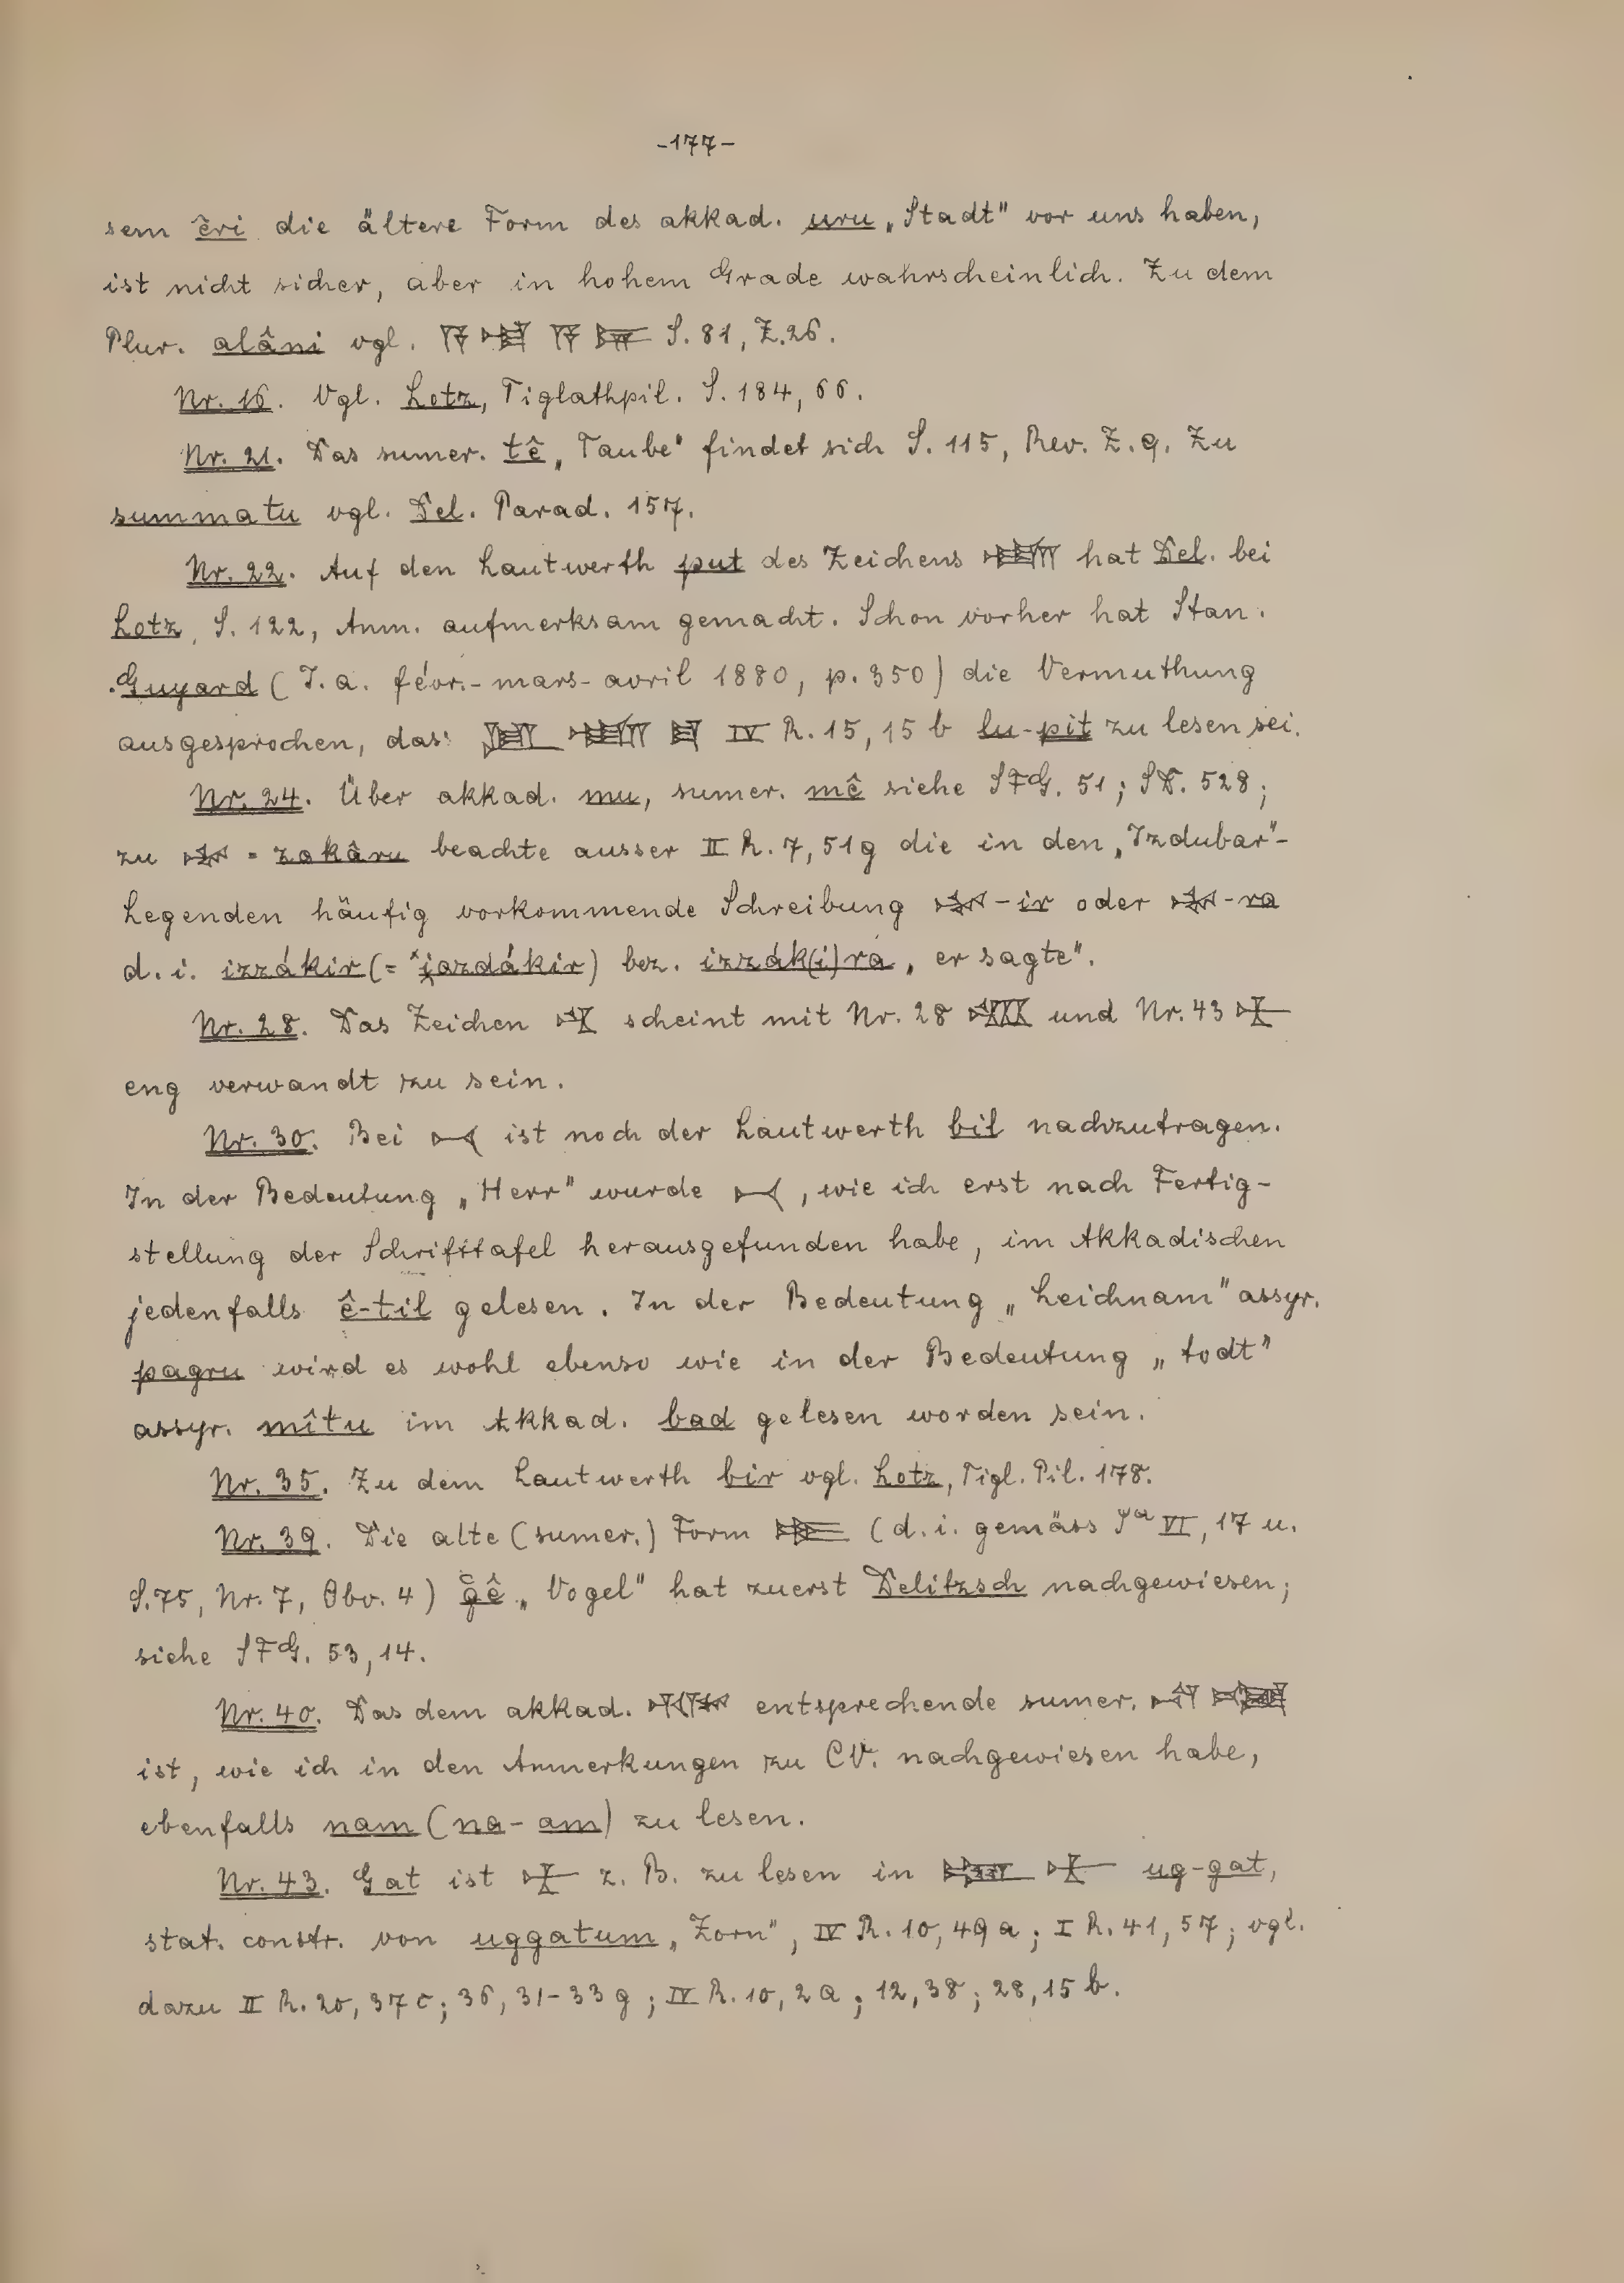 -177-
sem êri die ältere Form des akkad. uru „Stadt" vor uns haben,
ist nicht sicher, aber in hohem Grade wahrscheinlich. Zu dem
Plur. alâni vgl. S. 81, Z. 26.
Nr. 16. Vgl. Lotz, Tiglathpil. S. 184, 66.
Nr. 21. Das sumer. tê „Taube" findet sich S. 115, Rev. Z. 9. Zu
summatu vgl. Del. Parad. 157.
Nr. 22. Auf den Lautwerth put des Zeichens hat Del. bei
Lotz, S. 122, Anm. aufmerksam gemacht. Schon vorher hat Stan.
Guyard (J. a. févr.-mars-avril 1880, p. 350) die Vermuthung
ausgesprochen, das IV R. 15, 15 b lu-pit zu lesen sei.
Nr. 24. Über akkad. mu, sumer. mê siehe SFG. 51; SD. 528;
zu = zakâru beachte ausser II R. 7, 51g die in den „Izdubar"-
Legenden häufig vorkommende Schreibung -ir oder -ra
d. i. izzákir (= *jazdákir) bez. izzák(i)ra „er sagte".
Nr. 28. Das Zeichen scheint mit Nr. 28 und Nr. 43
eng verwandt zu sein.
Nr. 30. Bei ist noch der Lautwerth bil nachzutragen.
In der Bedeutung „Herr" wurde , wie ich erst nach Fertig-
stellung der Schrifttafel herausgefunden habe, im Akkadischen
jedenfalls ê-til gelesen. In der Bedeutung „Leichnam" assyr.
pagru wird es wohl ebenso wie in der Bedeutung „todt"
assyr. mîtu im Akkad. bad gelesen worden sein.
Nr. 35. Zu dem Lautwerth bir vgl. Lotz, Tigl. Pil. 178.
Nr. 39. Die alte (sumer.) Form (d. i. gemäss Sa VI, 17 u.
S. 75, Nr. 7, Obv. 4) „Vogel" hat zuerst Delitzsch nachgewiesen;
siehe SFG. 53, 14.
Nr. 40. Das dem akkad. entsprechende sumer.
ist, wie ich in den Anmerkungen zu CV. nachgewiesen habe,
ebenfalls nam (na-am) zu lesen.
Nr. 43. Gat ist z. B. zu lesen in ug-gat,
stat. constr. von uggatum „Zorn", IV R. 10, 49a; I R. 41, 57; vgl.
dazu II R. 20, 37c; 36, 31-33g; IV R. 10, 2a; 12, 38; 28, 15b.